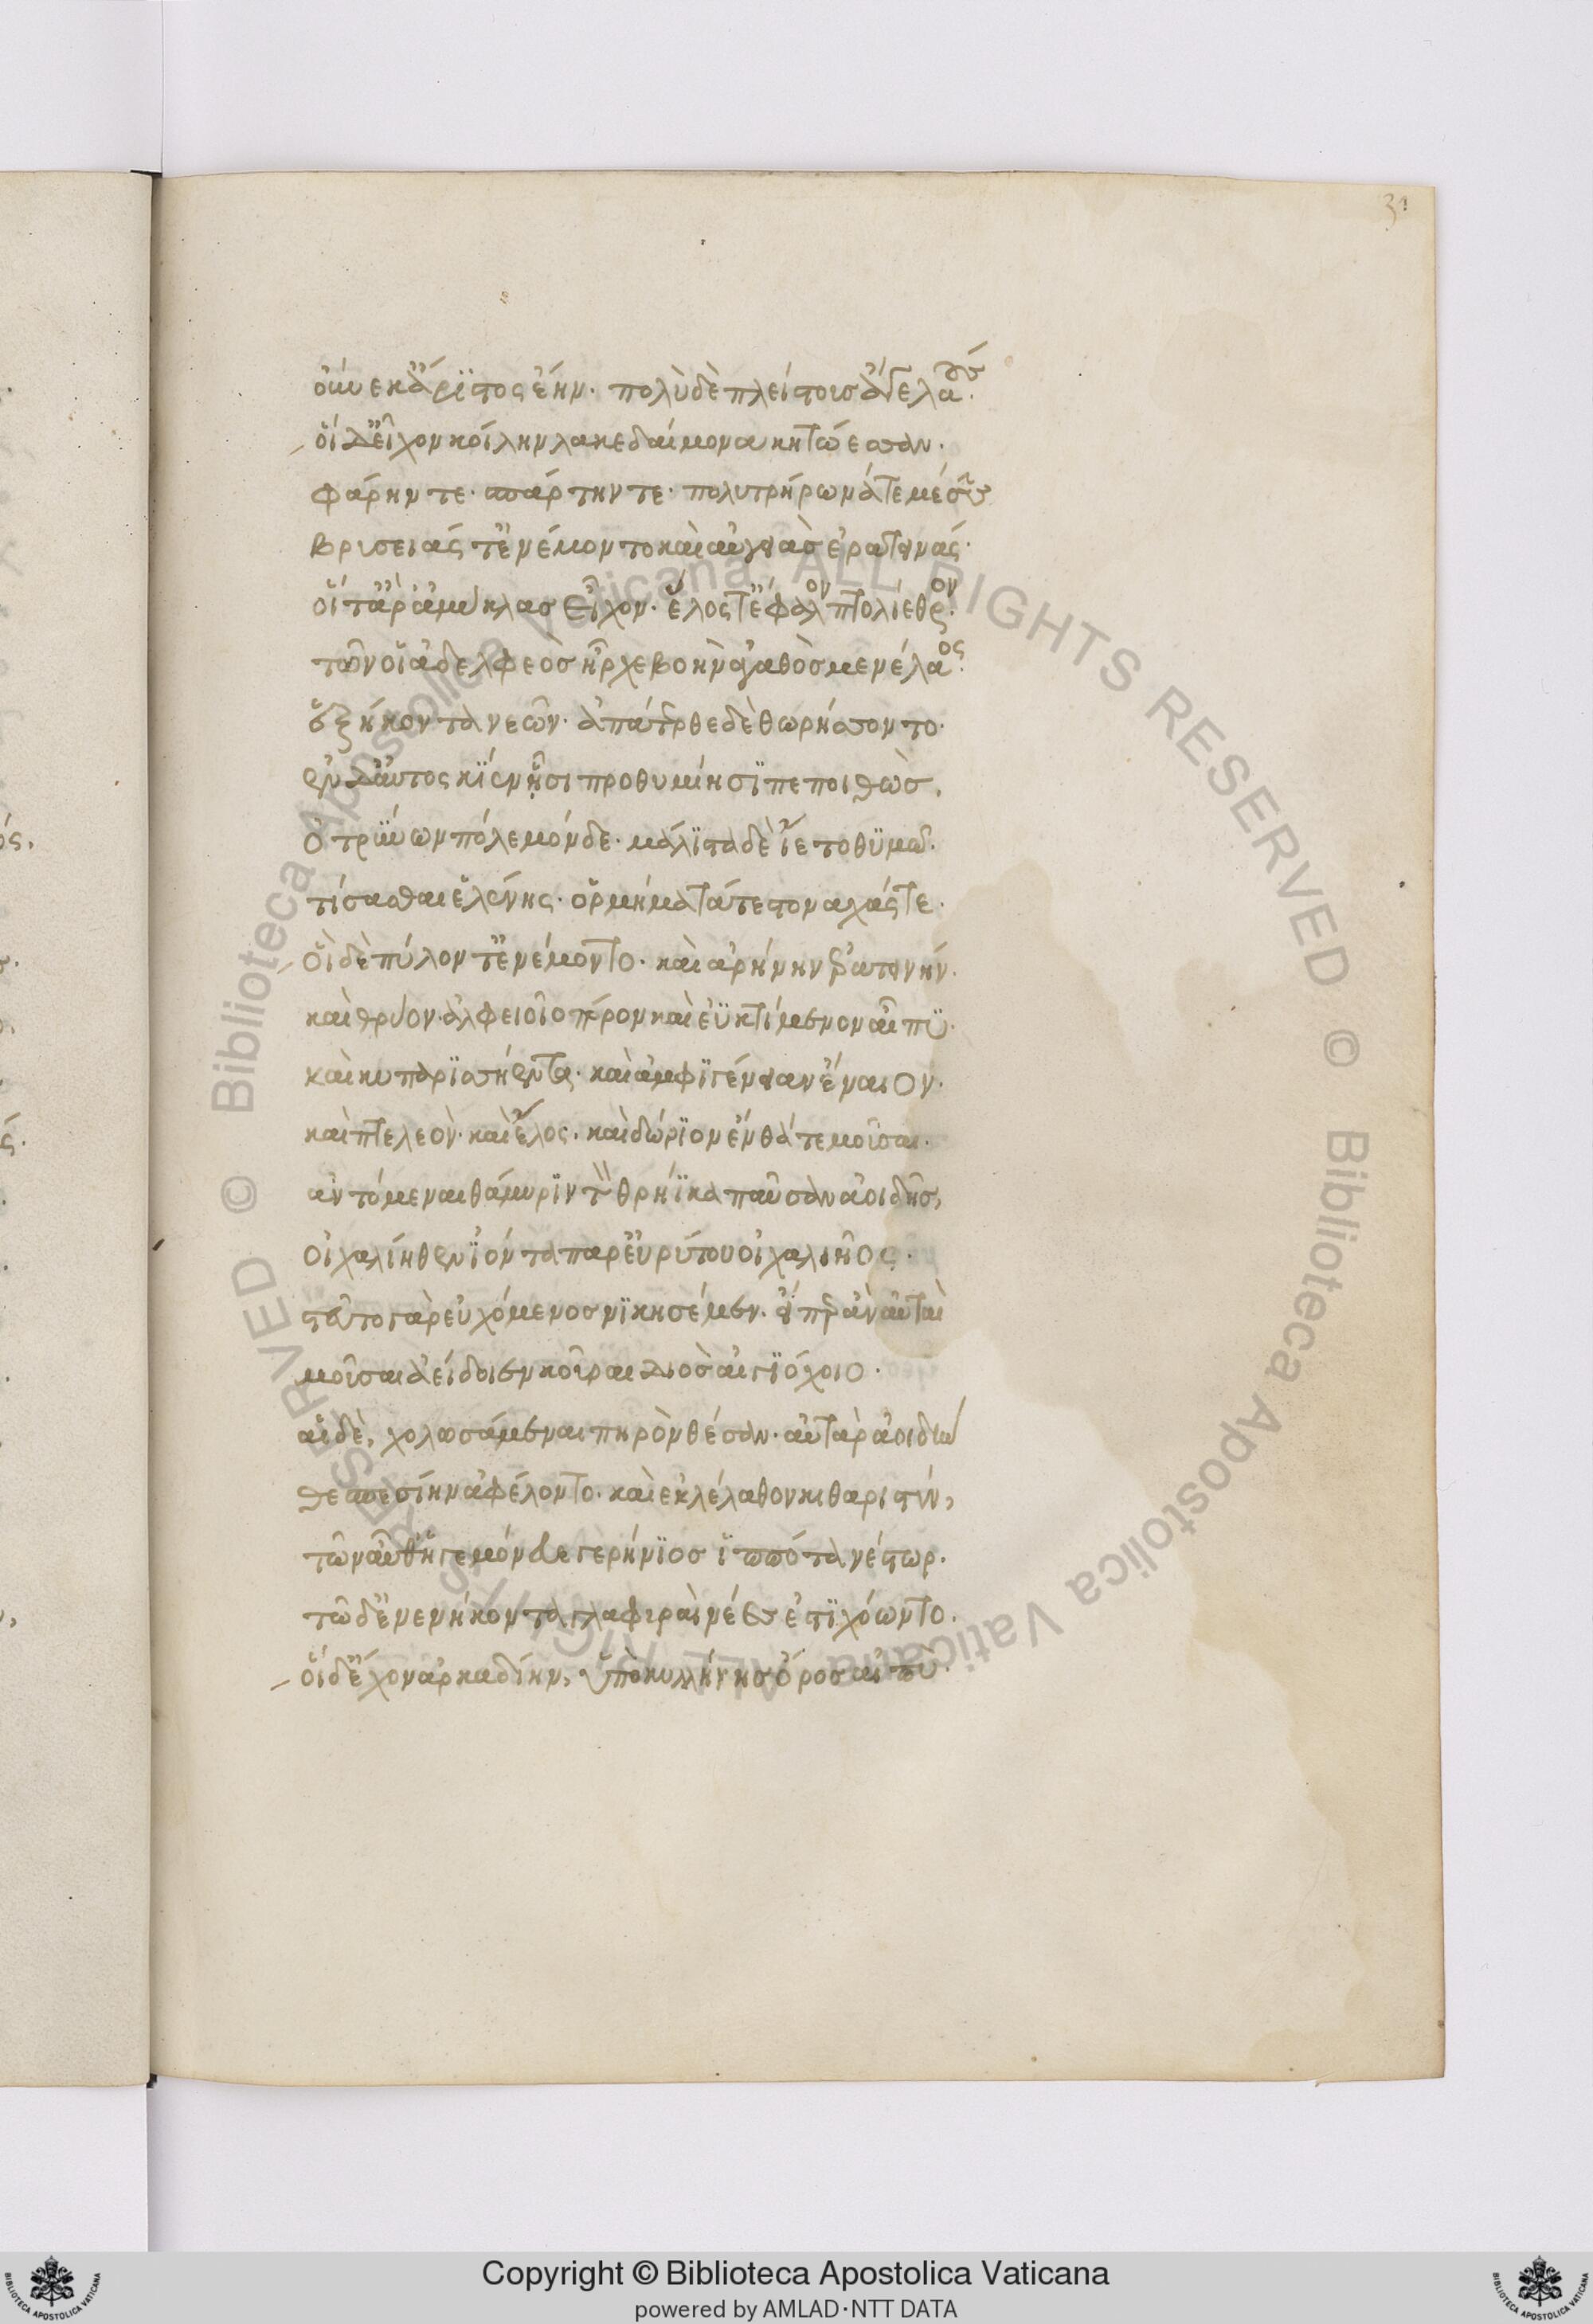 31
οὕνεκ' ἄριστος ἔην· πολὺ δὲ πλείστους ἄγε λαούς·
οἵ δ' εἶχον κοίλην λακεδαίμονα κητώεσσαν·
φάρην τε· σπάρτην τε· πολυτρήρωνά τε μέσσην
βρισειάς τ' ἐνέμοντο καὶ αὐγειὰς ἐρατεινάς·
οἵ τ' ἄρ' ἀμύκλας εἶχον· ἕλος τ' ἔφαλον πτολίεθρον·
τῶν οἱ ἀδελφεὸς ἦρχε βοὴν ἀγαθὸς μενέλαος·
ἑξήκοντα νεῶν· ἀπάτερθε δὲ θωρήσσοντο·
ἐν δ' αὐτὸς κίεν ᾗσι προθυμίῃσι πεποιθὼς,
ὀτρύνων πόλεμόνδε· μάλιστα δὲ ἵετο θυμῶ·
τίσασθαι ἑλένης· ὁρμήματά τε στοναχάς τε·
οἳ δὲ πύλον τ' ἐνέμοντο· καὶ ἀρήνην ἐρατεινήν·
καὶ θρύον ἀλφειοῖο πόρον καὶ ἐϋκτίμενον αἶπυ·
καὶ κυπαρισσήεντα· καὶ ἀμφιγένειαν ἔναιον·
καὶ πτελεὸν· καὶ ἕλος· καὶ δώριον ἔνθά τε μοῦσαι·
ἀντόμεναι θάμυριν τὸν θρήϊκα παῦσαν ἀοιδῆς,
οἰχαλίηθεν ἰόντα παρ' εὐρύτου οἰχαλιῆος·
στεῦτο γὰρ εὐχόμενος νικησέμεν· εἴπερ ἂν αὐταὶ
μοῦσαι ἀείδοιεν κοῦραι διὸς αἰγιόχοιο·
αἳ δὲ, χολωσάμεναι πηρὸν θέσαν· αὐτὰρ ἀοιδὴν
θεσπεσίην ἀφέλοντο· καὶ ἐκλέλαθον κιθαριστύν,
τῶν αὖθ' ἡγεμόνευε γερήνιος ἱππότα νέστωρ·
τῶ δ' ἐνενήκοντα γλαφυραὶ νέες ἐστιχόωντο·
οἵ δ' ἔχον ἀρκαδίην, ὑπὸ κυλλήνης ὄρος αἰπὺ·
Copyright © Biblioteca Apostolica Vaticana
powered by AMLAD·NTT DATA